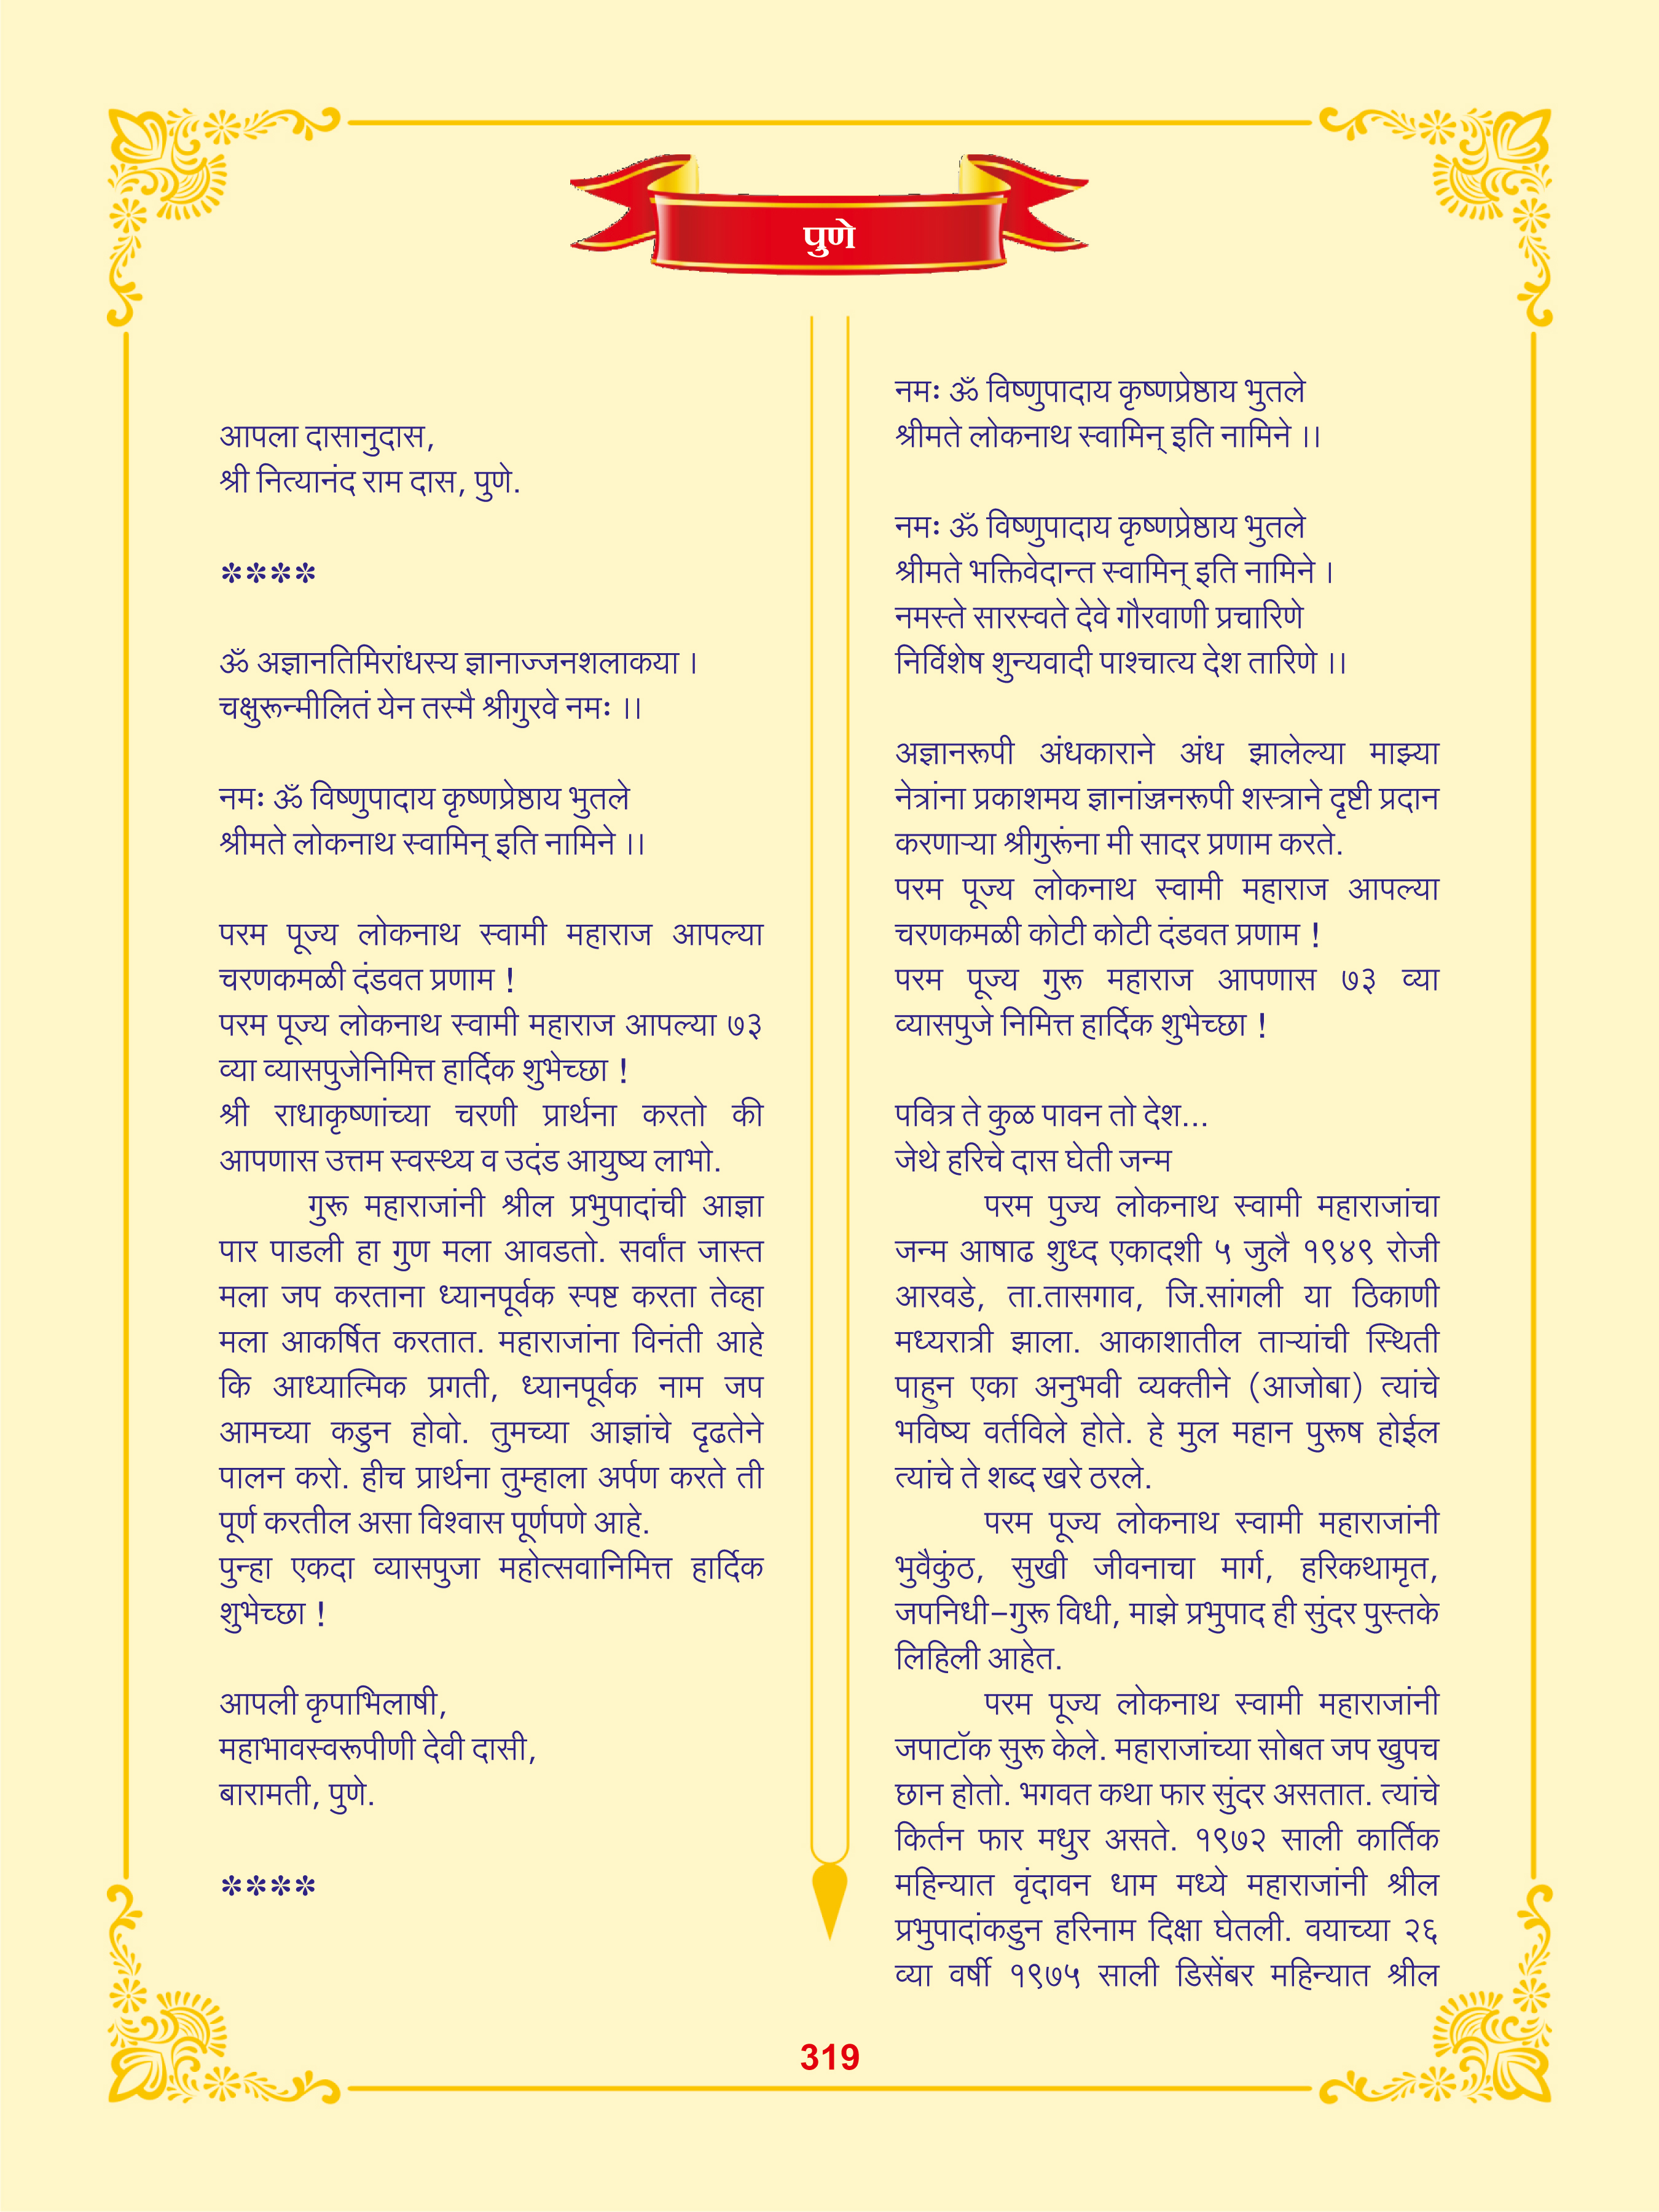 पुणे
आपला दासानुदास,
श्री नित्यानंद राम दास, पुणे.
****
ॐ अज्ञानतिमिरांधस्य ज्ञानाज्जनशलाकया ।
चक्षुरून्मीलितं येन तस्मै श्रीगुरवे नमः ।।
नमः ॐ विष्णुपादाय कृष्णप्रेष्ठाय भुतले
श्रीमते लोकनाथ स्वामिन् इति नामिने ।।
परम पूज्य लोकनाथ स्वामी महाराज आपल्या
चरणकमळी दंडवत प्रणाम !
परम पूज्य लोकनाथ स्वामी महाराज आपल्या ७३
व्या व्यासपुजेनिमित्त हार्दिक शुभेच्छा !
श्री राधाकृष्णांच्या चरणी प्रार्थना करतो की
आपणास उत्तम स्वस्थ्य व उदंड आयुष्य लाभो.
गुरू महाराजांनी श्रील प्रभुपादांची आज्ञा
पार पाडली हा गुण मला आवडतो. सर्वांत जास्त
मला जप करताना ध्यानपूर्वक स्पष्ट करता तेव्हा
मला आकर्षित करतात. महाराजांना विनंती आहे
कि आध्यात्मिक प्रगती, ध्यानपूर्वक नाम जप
आमच्या कडुन होवो. तुमच्या आज्ञांचे दृढतेने
पालन करो. हीच प्रार्थना तुम्हाला अर्पण करते ती
पूर्ण करतील असा विश्वास पूर्णपणे आहे.
पुन्हा एकदा व्यासपुजा महोत्सवानिमित्त हार्दिक
शुभेच्छा !
आपली कृपाभिलाषी,
महाभावस्वरूपीणी देवी दासी,
बारामती, पुणे.
****
नमः ॐ विष्णुपादाय कृष्णप्रेष्ठाय भुतले
श्रीमते लोकनाथ स्वामिन् इति नामिने ।।
नमः ॐ विष्णुपादाय कृष्णप्रेष्ठाय भुतले
श्रीमते भक्तिवेदान्त स्वामिन् इति नामिने ।
नमस्ते सारस्वते देवे गौरवाणी प्रचारिणे
निर्विशेष शुन्यवादी पाश्चात्य देश तारिणे ।।
अज्ञानरूपी अंधकाराने अंध झालेल्या माझ्या
नेत्रांना प्रकाशमय ज्ञानांज्जनरूपी शस्त्राने दृष्टी प्रदान
करणाऱ्या श्रीगुरूंना मी सादर प्रणाम करते.
परम पूज्य लोकनाथ स्वामी महाराज आपल्या
चरणकमळी कोटी कोटी दंडवत प्रणाम !
परम पूज्य गुरू महाराज आपणास ७३ व्या
व्यासपुजे निमित्त हार्दिक शुभेच्छा !
पवित्र ते कुळ पावन तो देश...
जेथे हरिचे दास घेती जन्म
परम पुज्य लोकनाथ स्वामी महाराजांचा
जन्म आषाढ शुध्द एकादशी ५ जुलै १९४९ रोजी
आरवडे, ता.तासगाव, जि.सांगली या ठिकाणी
मध्यरात्री झाला. आकाशातील ताऱ्यांची स्थिती
पाहुन एका अनुभवी व्यक्तीने (आजोबा) त्यांचे
भविष्य वर्तविले होते. हे मुल महान पुरूष होईल
त्यांचे ते शब्द खरे ठरले.
परम पूज्य लोकनाथ स्वामी महाराजांनी
भुवैकुंठ, सुखी जीवनाचा मार्ग, हरिकथामृत,
जपनिधी-गुरू विधी, माझे प्रभुपाद ही सुंदर पुस्तके
लिहिली आहेत.
परम पूज्य लोकनाथ स्वामी महाराजांनी
जपाटॉक सुरू केले. महाराजांच्या सोबत जप खुपच
छान होतो. भगवत कथा फार सुंदर असतात. त्यांचे
किर्तन फार मधुर असते. १९७२ साली कार्तिक
महिन्यात वृंदावन धाम मध्ये महाराजांनी श्रील
प्रभुपादांकडुन हरिनाम दिक्षा घेतली. वयाच्या २६
व्या वर्षी १९७५ साली डिसेंबर महिन्यात श्रील
319